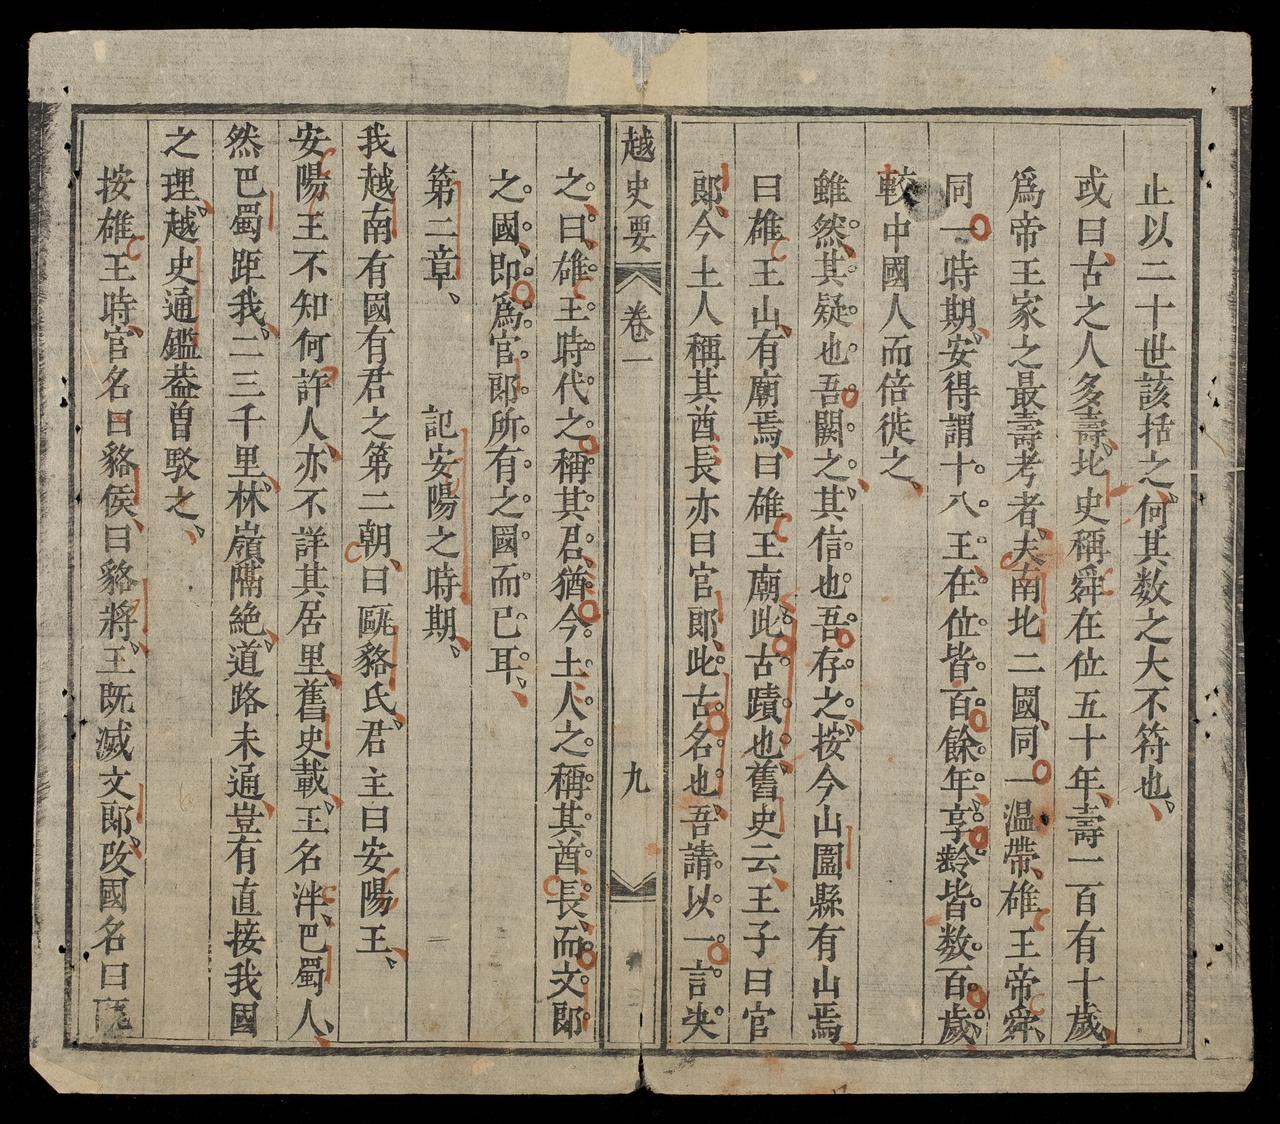 止以二十世該括之、何其数之大不符也、
或曰、古之人多壽、北史稱舜在位五十年、壽一百有十歲、
爲帝王家之最壽考者、夫南北二國、同一溫帶、雄王帝舜、
同一時期、安得謂十八王在位皆百餘年、享齡皆数百歲、
較中國人而倍徙之、
雖然、其疑也吾闕之、其信也吾存之、按今山圍縣有山焉、
曰雄王山、有廟焉、曰雄王廟、此古蹟也、舊史云、王子曰官
郎、今土人稱其酋長亦曰官郎、此古名也、吾請以一言决
越史要
卷一
九
之、曰、雄王時代之稱其君、猶今土人之稱其酋長、而文郎
之國、即爲官郎所有之國而已耳、
第二章、 記安陽之時期、
我越南有國有君之第二朝、曰甌貉氏、君主曰安陽王、
安陽王不知何許人、亦不詳其居里、舊史載、王名泮、巴蜀人、
然巴蜀距我、二三千里、林嶺隔絶、道路未通、豈有直接我國
之理、越史通鑑葢曽駁之、
按雄王時、官名曰貉侯、曰貉將、王既滅文郎、改國名曰甌